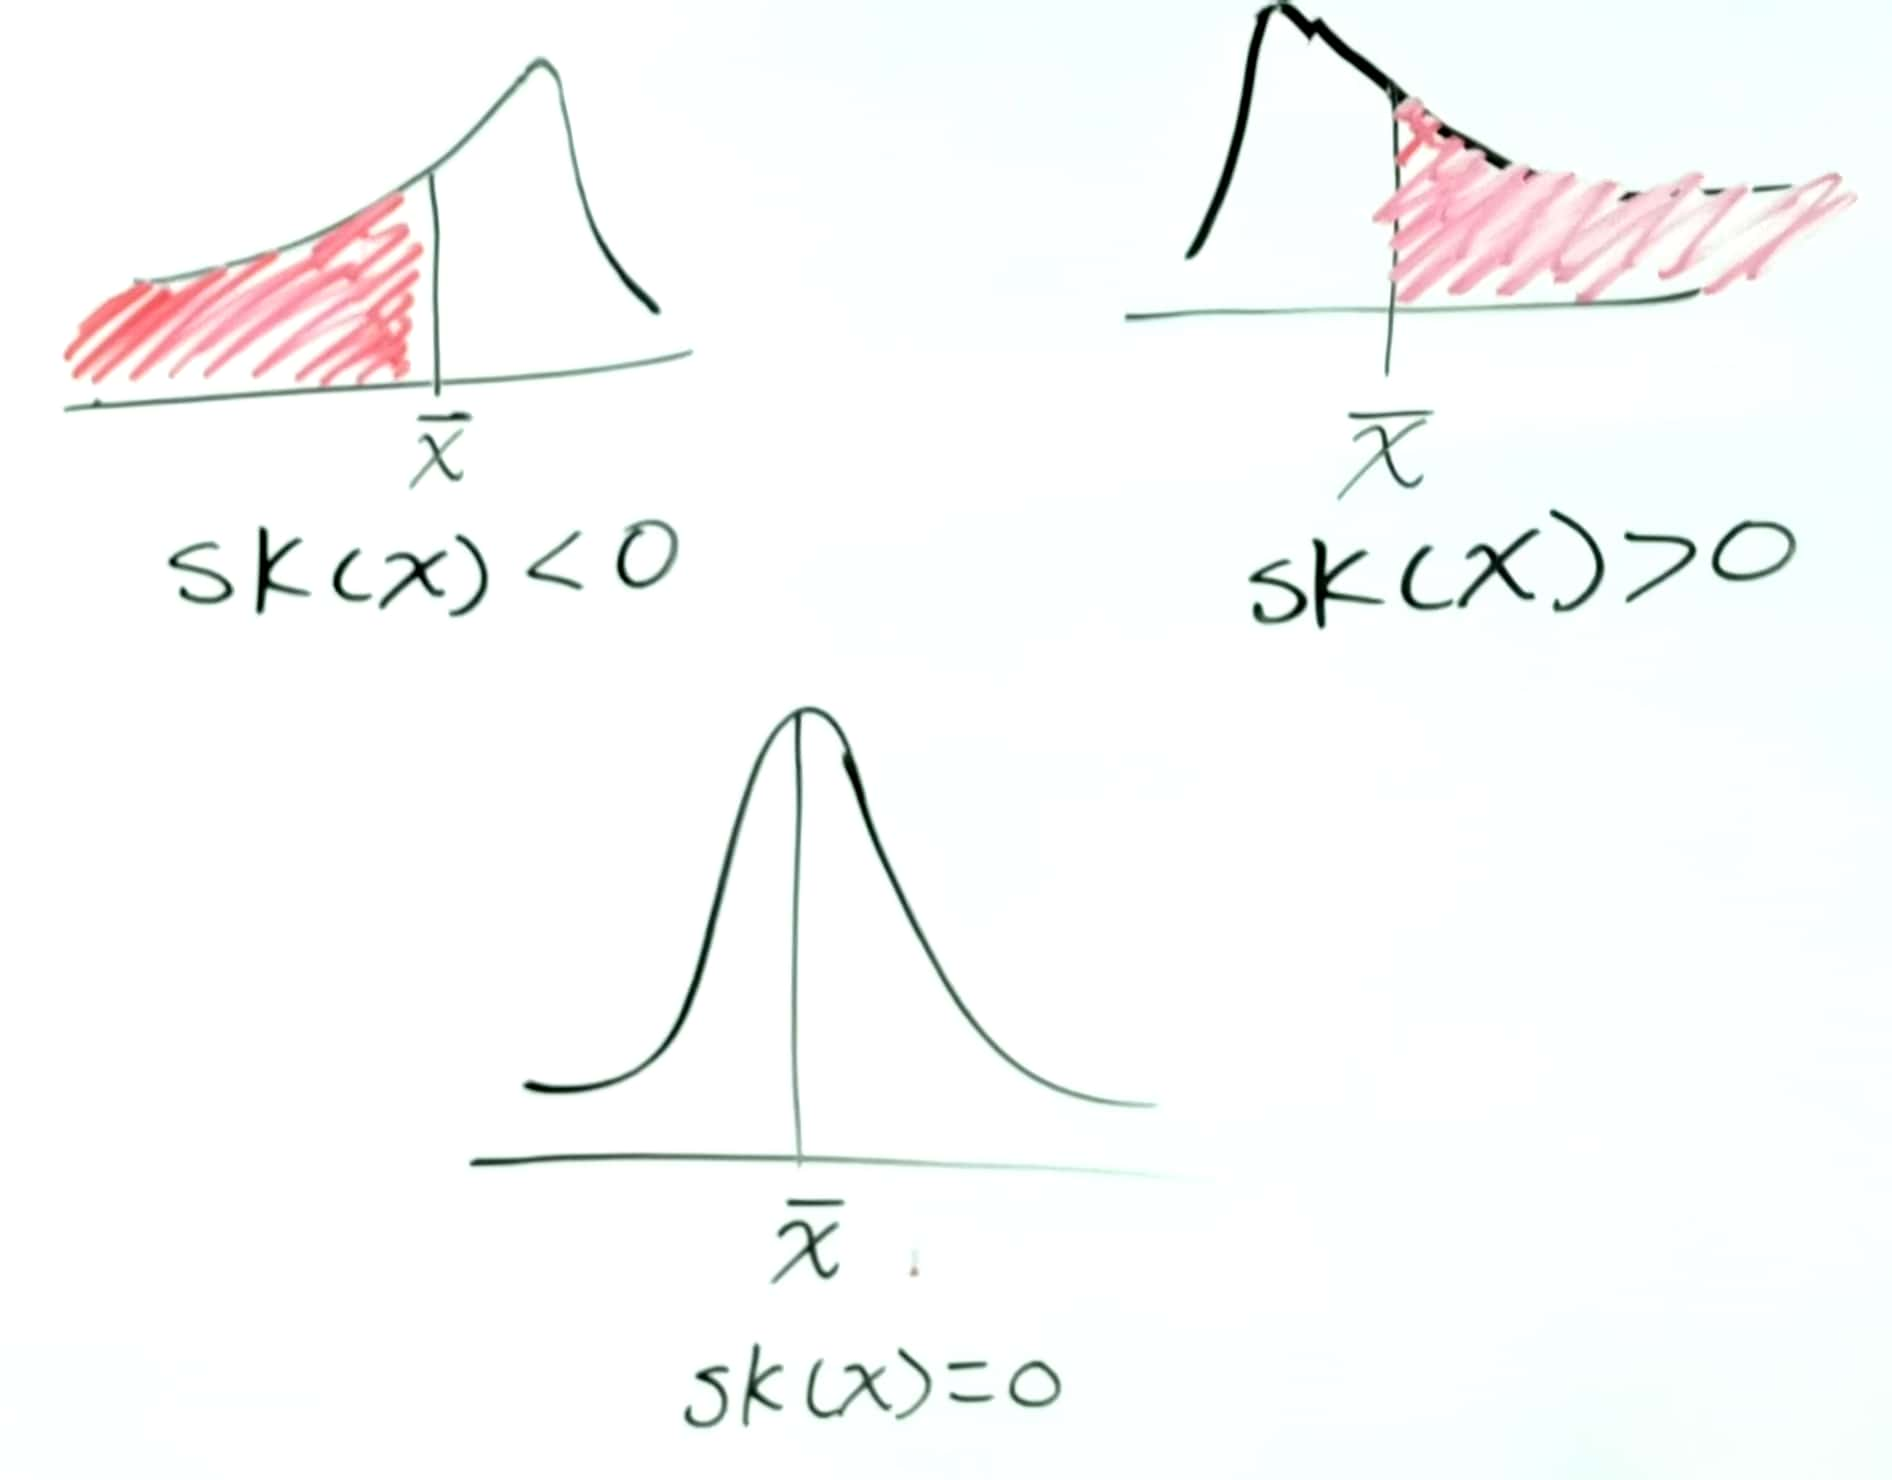 x̄
sk(x)<0
x̄
sk(x)>0
x̄
sk(x)=0